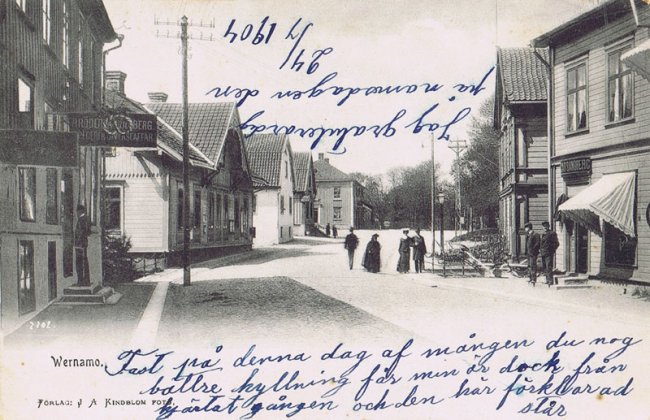 Jag gratulerar dig
på namnsdagen den
24/7 1904
BERG
LUNDBERG
2702.
Wernamo.
Fast på denna dag af mången du nog
bättre hyllning får min är dock från
hjärtat gången och den här förklarad
står
FÖRLAG: J. A. KINDBLOM FOTO.